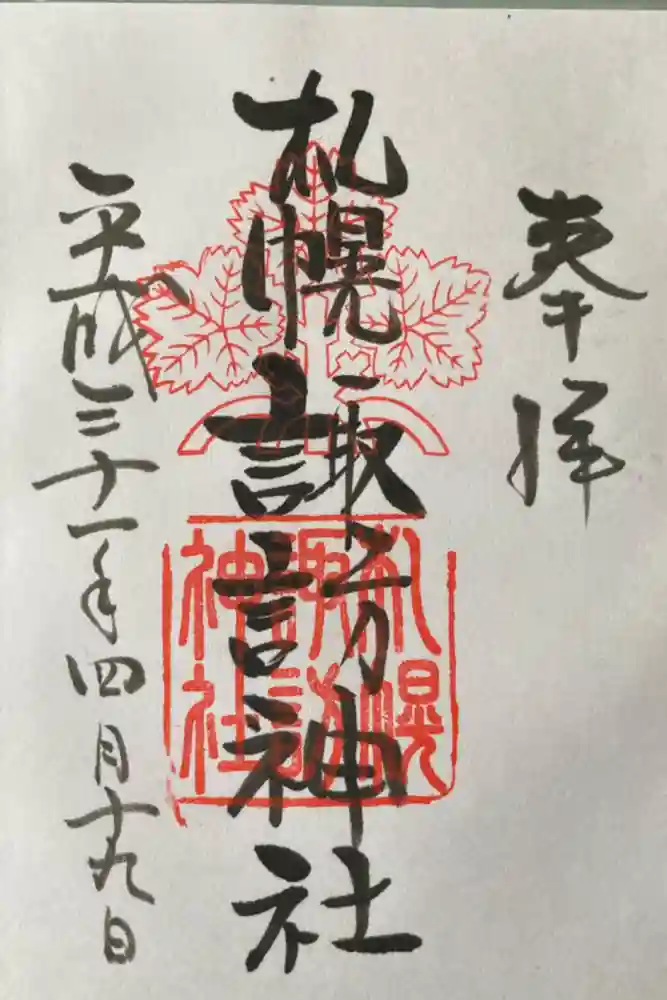 奉拝
札幌諏訪神社
札幌
諏訪
神社
平成三十一年四月十九日